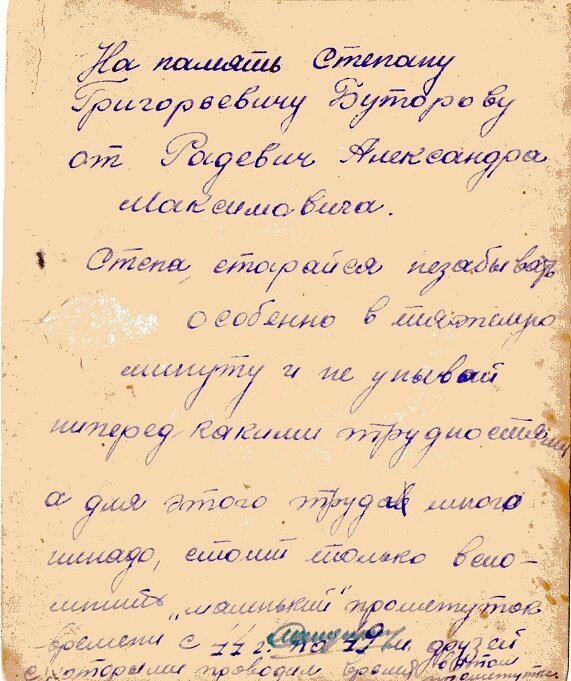 На память Степану
Григорьевичу Буторову
от Радевич Александра
Максимовича.
Степа, старайся незабывать
особенно в тяжелую
минуту и не унывай
ниперед какими трудностями
а для этого труда много
ненадо, стоит только вспо-
мнить „маленький" промежуток
времени с 77 г. по и друзей
с которыми проводил время в этом
промежутке